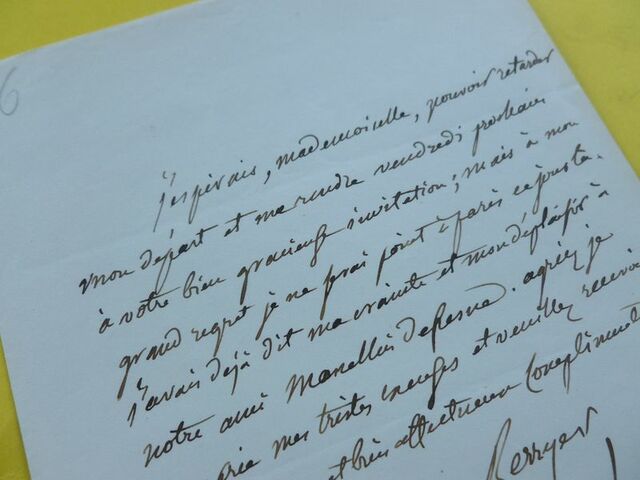 6
j'espérais, mademoiselle, pouvoir retarder
mon départ et me rendre vendredi prochain
à votre bien gracieuse invitation; mais à mon
grand regret je ne serai point à paris ce jour là.
j'avais déjà dit ma crainte et mon déplaisir à
notre ami Marcellus. agréez je
prie mes tristes excuses et veuillez recevoir
et bien affectueux compliments
Berryer